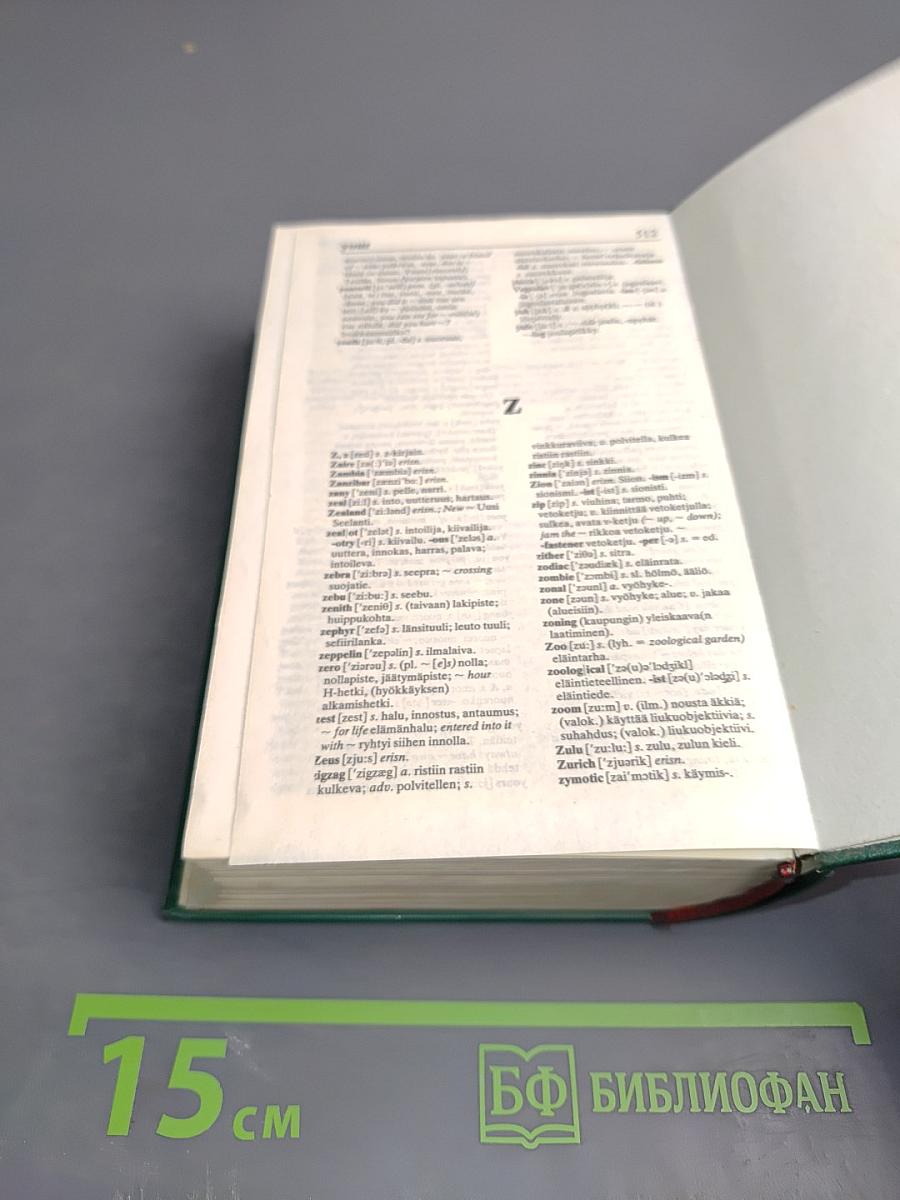 512
Z
Z, z [zed] s. z-kirjain.
Zaire [za(:)'iə] erisn.
Zambia ['zæmbiə] erisn.
Zanzibar [zænzi'ba:] erisn.
zany ['zeni] s. pelle, narri.
zeal [zi:l] s. into, uutteruus; hartaus.
Zealand ['zi:lənd] erisn.; New ~ Uusi
Seelanti.
zeal|ot ['zelət] s. intoilija, kiivailija.
-otry [-ri] s. kiivailu. -ous ['zeləs] a.
uuttera, innokas, harras, palava;
intoileva.
zebra ['zi:brə] s. seepra; ~ crossing
suojatie.
zebu ['zi:bu:] s. seebu.
zenith ['zeniθ] s. (taivaan) lakipiste;
huippukohta.
zephyr ['zefə] s. länsituuli; leuto tuuli;
sefiirilanka.
zeppelin ['zepəlin] s. ilmalaiva.
zero ['ziərəu] s. (pl. ~ [e]s) nolla;
nollapiste, jäätymäpiste; ~ hour
H-hetki, (hyökkäyksen)
alkamishetki.
zest [zest] s. halu, innostus, antaumus;
~ for life elämänhalu; entered into it
with ~ ryhtyi siihen innolla.
Zeus [zju:s] erisn.
zigzag ['zigzæg] a. ristiin rastiin
kulkeva; adv. polvitellen; s.
vinkkuraviiva; v. polvitella, kulkea
ristiin rastiin.
zinc [ziŋk] s. sinkki.
zinnia ['zinjə] s. zinnia.
Zion ['zaiən] erisn. Siion. -ism [-izm] s.
sionismi. -ist [-ist] s. sionisti.
zip [zip] s. viuhina; tarmo, puhti;
vetoketju; v. kiinnittää vetoketjulla;
sulkea, avata v-ketju (~ up, ~ down);
jam the ~ rikkoa vetoketju. ~
-fastener vetoketju. -per [-ə] s. = ed.
zither ['ziθə] s. sitra.
zodiac ['zəudiæk] s. eläinrata.
zombie ['zɔmbi] s. sl. hölmö, ääliö.
zonal ['zəunl] a. vyöhyke-.
zone [zəun] s. vyöhyke; alue; v. jakaa
(alueisiin).
zoning (kaupungin) yleiskaava(n
laatiminen).
Zoo [zu:] s. (lyh. = zoological garden)
eläintarha.
zoolog|ical ['zə(u)ə'lɔdʒikl]
eläintieteellinen. -ist [zə(u)'ɔlədʒi] s.
eläintiede.
zoom [zu:m] v. (ilm.) nousta äkkiä;
(valok.) käyttää liukuobjektiivia; s.
suhahdus; (valok.) liukuobjektiivi.
Zulu ['zu:lu:] s. zulu, zulun kieli.
Zurich ['zjuərik] erisn.
zymotic [zai'mɔtik] s. käymis-.
15 см
БФ БИБЛИОФАН